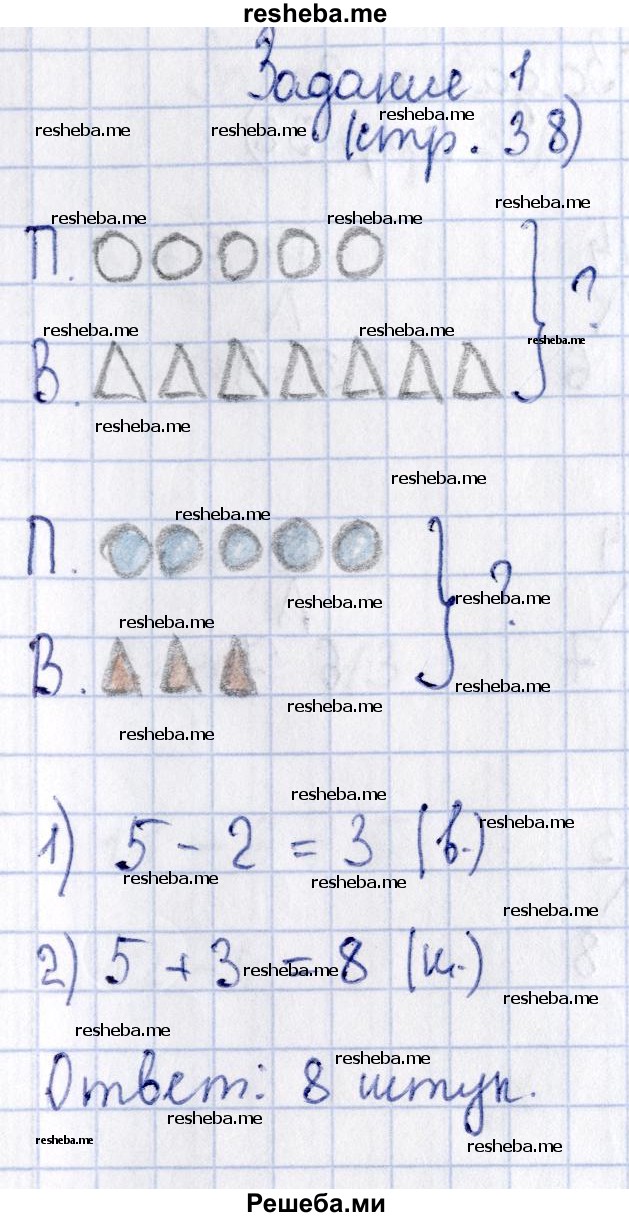 resheba.me
Задание 1
resheba.me
resheba.me resheba.me
(стр. 38)
resheba.me
resheba.me resheba.me
П. ?
resheba.me resheba.me
resheba.me
В.
resheba.me
resheba.me
resheba.me
П. ?
resheba.me resheba.me
resheba.me
В.
resheba.me
resheba.me
resheba.me
resheba.me
1) 5 - 2 = 3 (в.)
resheba.me
resheba.me resheba.me
resheba.me
2) 5 + 3 = 8 (к.)
resheba.me
resheba.me
resheba.me
resheba.me
Ответ: 8 штук.
resheba.me
resheba.me resheba.me
Решеба.ми